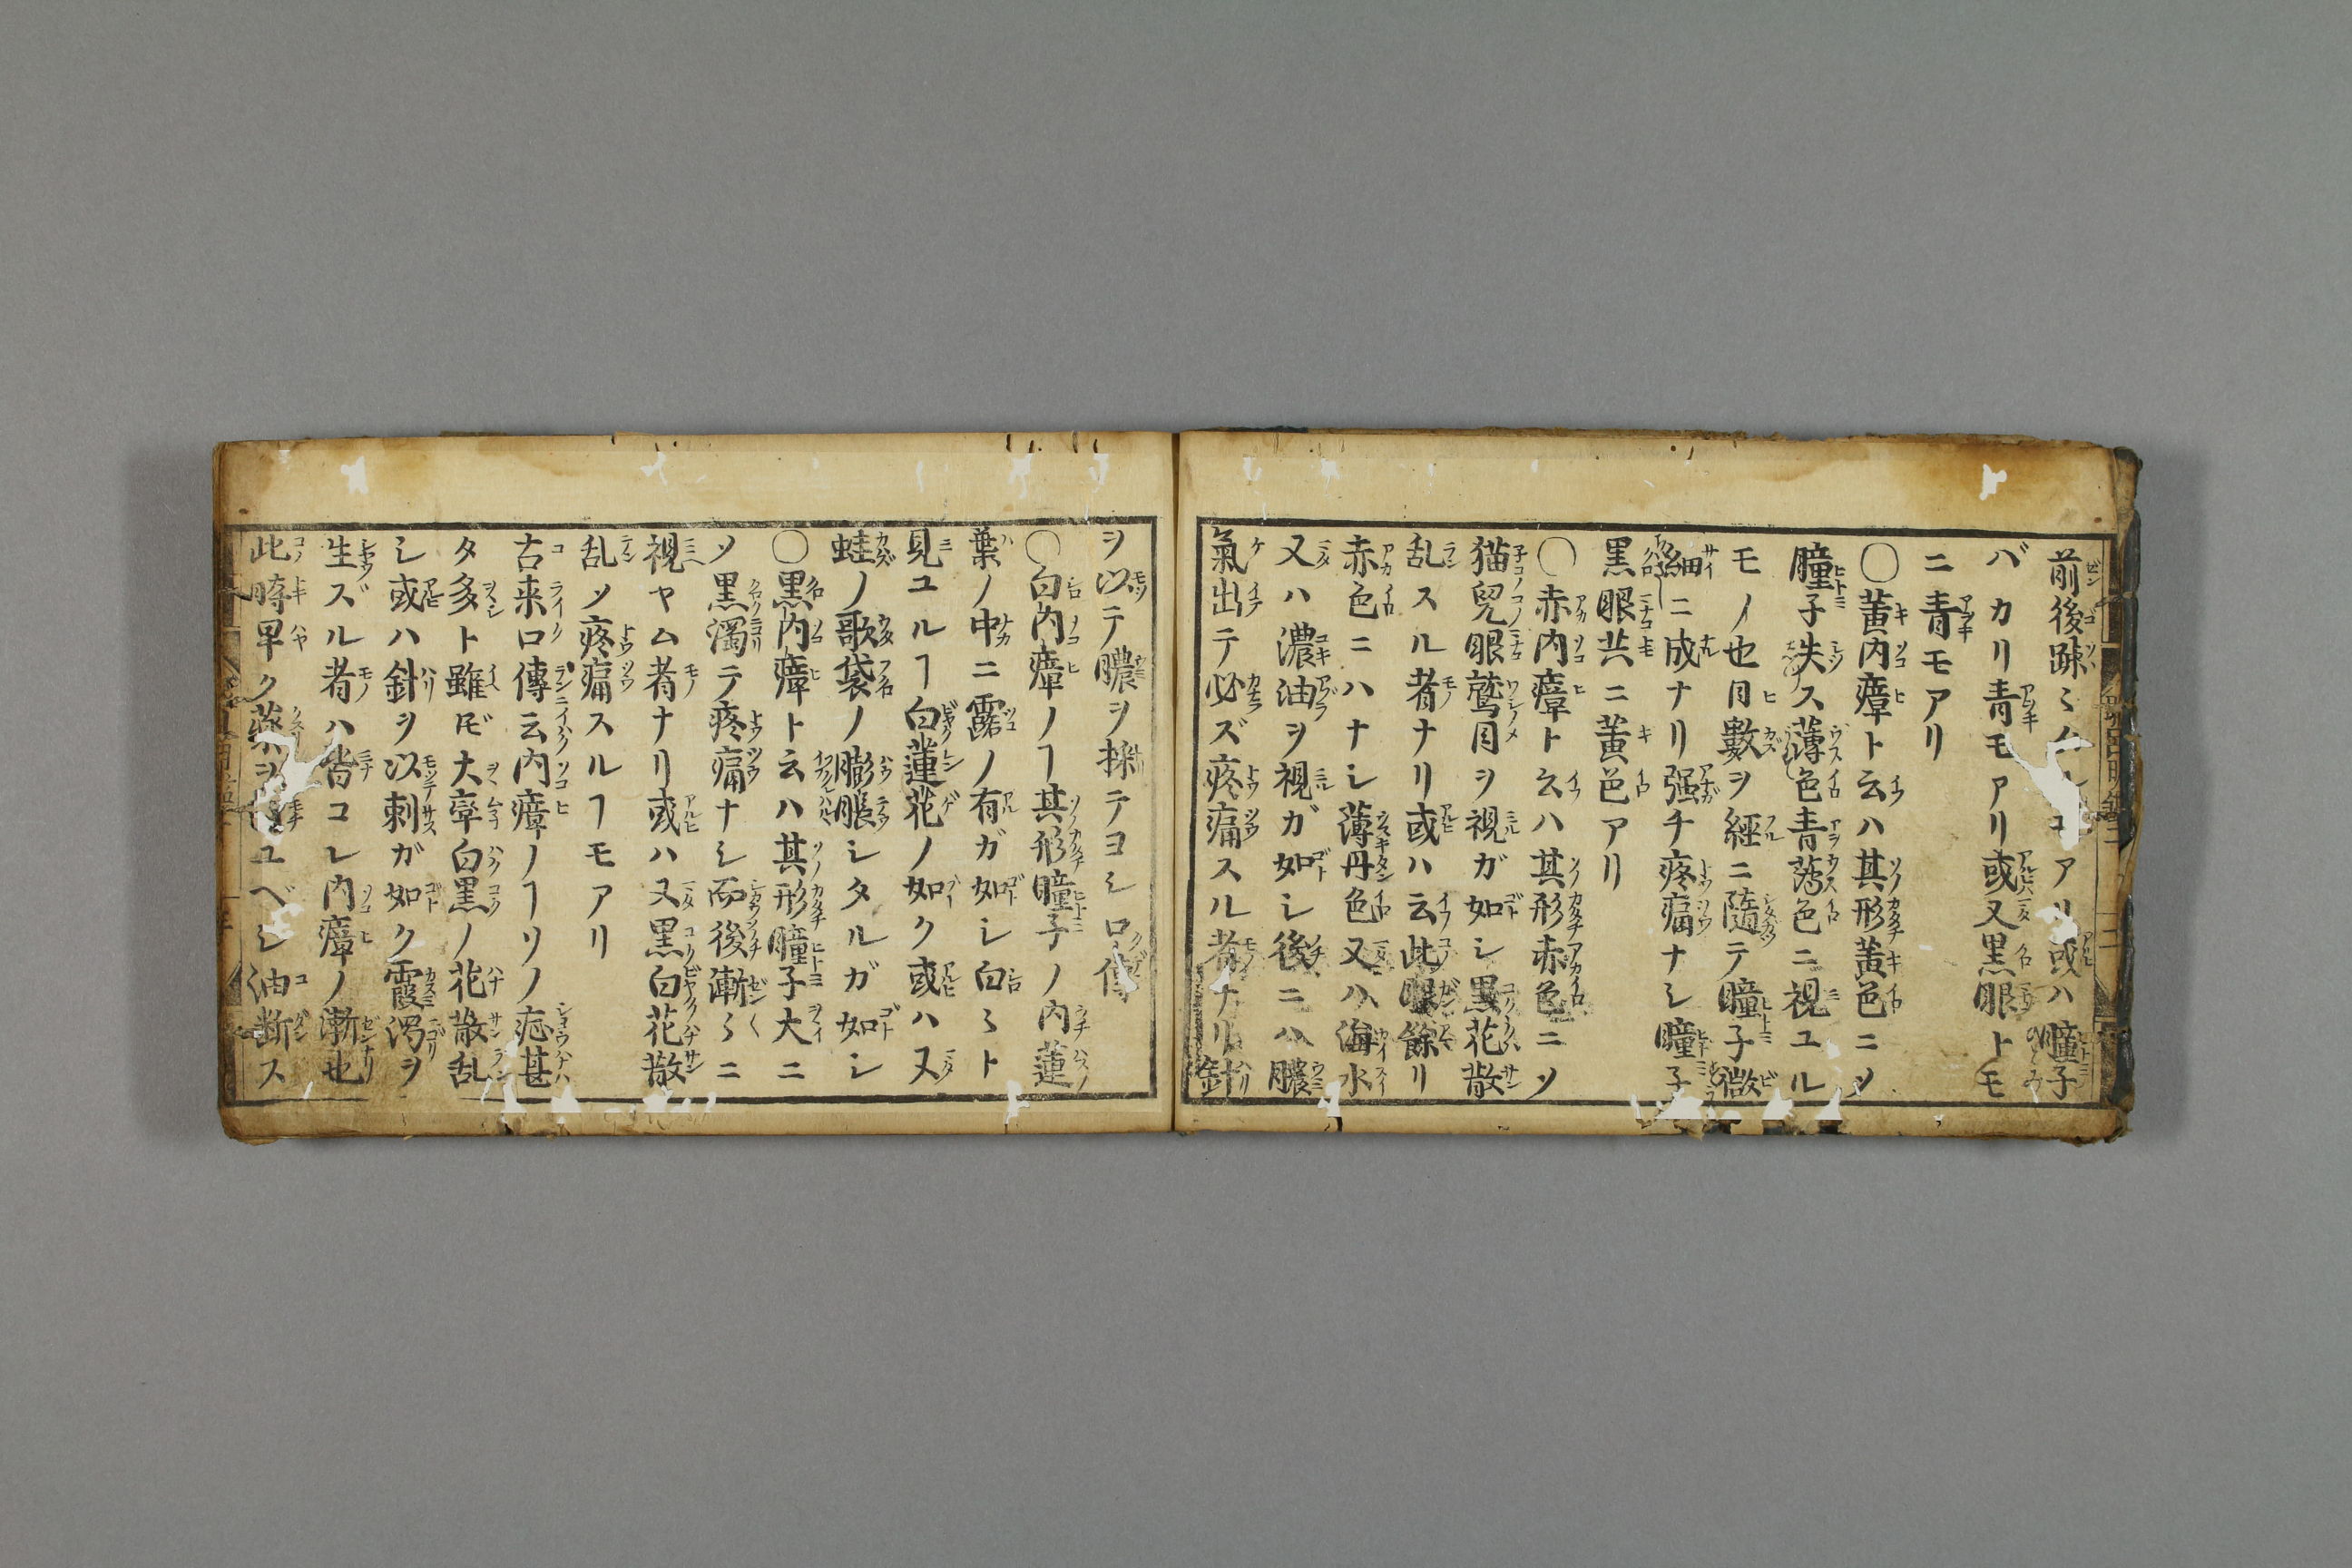 前後踈ミ アリ或ハ瞳子
バカリ青モアリ或又黒眼トモ
ニ青モアリ
〇黄内瘴ト云ハ其形黄色ニソ
瞳子失ス薄色青薄色ニ視ユル
モノ也日數ヲ經ニ隨テ瞳子微
細ニ成ナリ强チ疼痛ナシ瞳子
黒眼共ニ黄色アリ
〇赤内瘴ト云ハ其形赤色ニソ
猫兒眼鷲目ヲ視ガ如シ黒花散
乱スル者ナリ或ハ云此眼餘リ
赤色ニハナシ薄丹色又ハ海水
又ハ濃油ヲ視ガ如シ後ニハ膿
氣出テ必ズ疼痛スル者ナリ針
ヲ以テ膿ヲ採テヨシ口傳
〇白内瘴ノヿ其形瞳子ノ内蓮
葉ノ中ニ露ノ有ガ如シ白〻ト
見ユルヿ白蓮花ノ如ク或ハ又
蛙ノ歌袋ノ膨脹シタルガ如シ
〇黒内瘴ト云ハ其形瞳子大ニ
ソ黒濁テ疼痛ナシ而後漸〻ニ
視ヤム者ナリ或ハ又黒白花散
乱ソ疼痛スルヿモアリ
古来口傳云内瘴ノヿソノ症甚
タ多ト雖𪜈大率白黒ノ花散乱
シ或ハ針ヲ以刺ガ如ク霞濁ヲ
生ズル者ハ皆コレ内瘴ノ漸也
此時早ク藥ヲ ユベシ油断ス